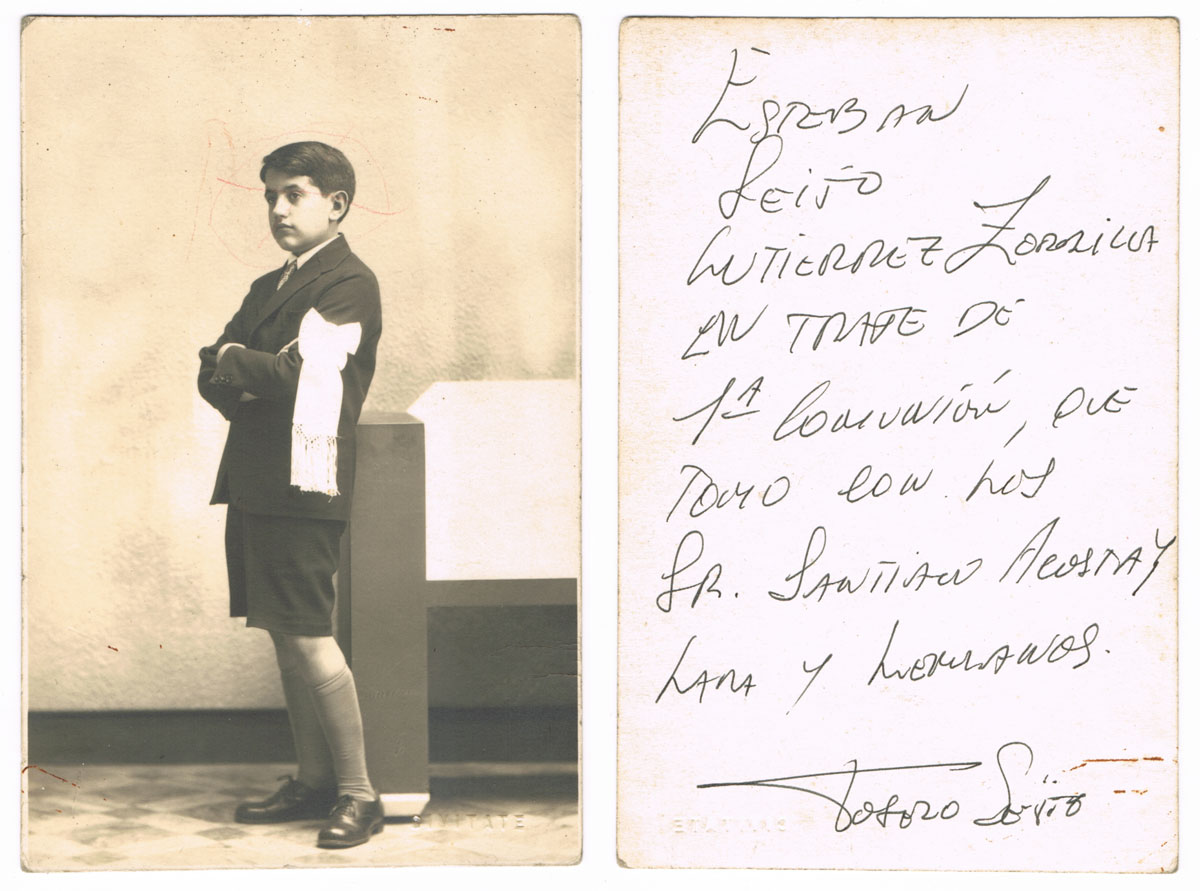 ESTEBAN
SEIJO
GUTIERREZ ZORRILLA
EN TRAJE DE
1ª COMUNIÓN, QUE
TOMO CON LOS
SR. SANTIAGO ACOSTA Y
LARA Y HERMANOS.
SEIJO